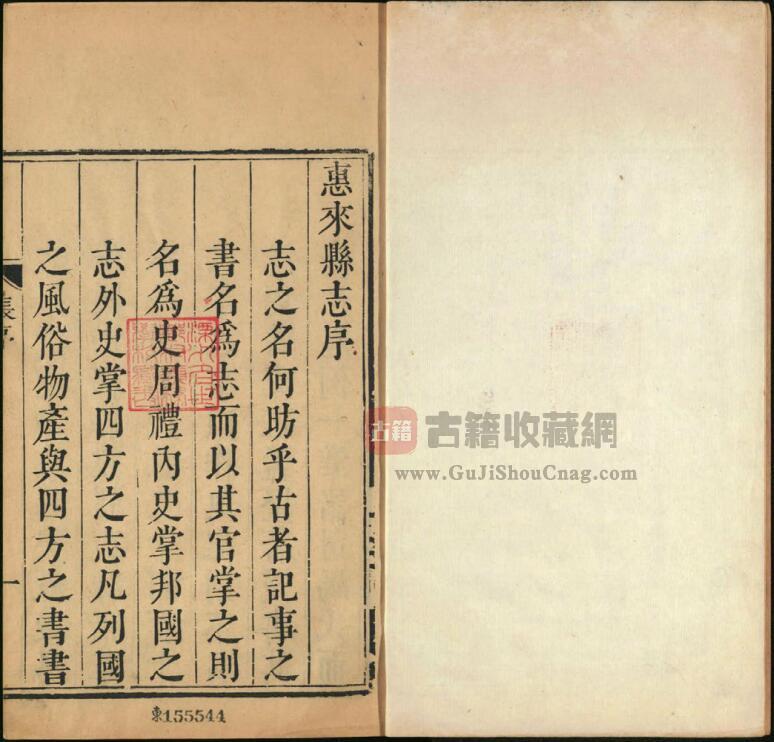 惠來縣志序
志之名何昉乎古者記事之
書名爲志而以其官掌之則
名爲史周禮內史掌邦國之
志外史掌四方之志凡列國
之風俗物產與四方之書書
張序
一
東155544
古籍
古籍收藏網
www.GuJiShouCnag.com